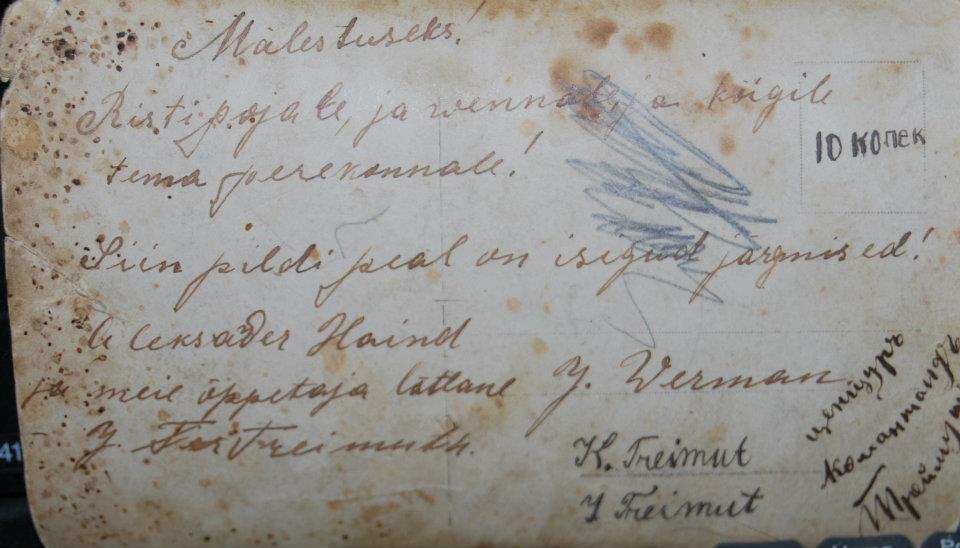 Mälestuseks!
Ristipojale, ja wennale, ja kõigile
tema perekonnale!
10 копек
Siin pildi peal on isegud järgmised!
Aleksader Haind
ja meie õppetaja lätlane J. Werman
J. Treimuth.
K. Treimut
J Treimut
цензуръ
командиръ
Треймутъ